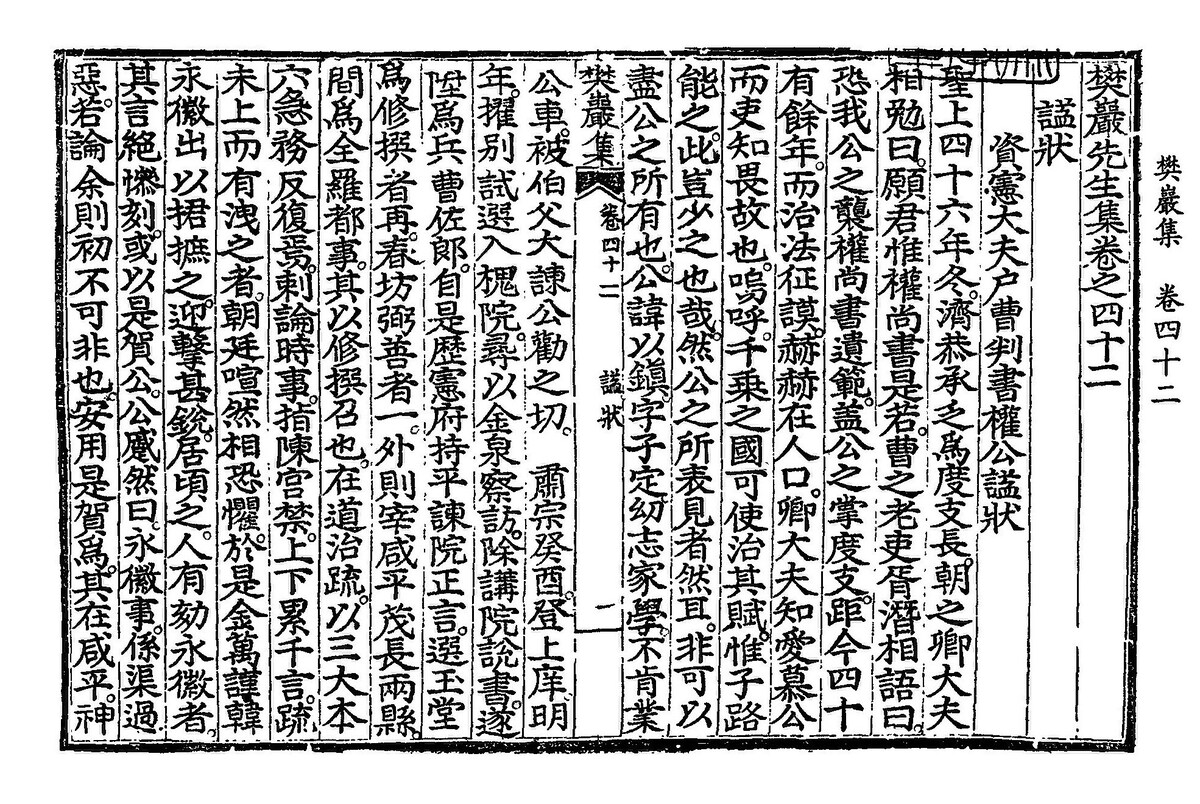 樊巖集 卷四十二
樊巖先生集卷之四十二
謚狀
資憲大夫戶曹判書權公謚狀
聖上四十六年冬。濟恭承乏爲度支長。朝之卿大夫
相勉曰。願君惟權尚書是若。曹之老吏胥潛相語曰。
恐我公之襲權尚書遺範。盖公之掌度支。距今四十
有餘年。而治法征謨。赫赫在人口。卿大夫知愛慕公
而吏知畏故也。嗚呼。千乘之國可使治其賦。惟子路
能之。此豈少之也哉。然公之所表見者然耳。非可以
盡公之所有也。公諱以鎭。字子定。幼志家學。不肯業
樊巖集 卷四十二 謚狀 一
公車。被伯父大諫公勸之切。 肅宗癸酉。登上庠明
年。擢別試選入槐院。尋以金泉察訪。除講院說書。遂
陞爲兵曹佐郎。自是歷憲府持平諫院正言。選玉堂
爲修撰者再。春坊弼善者一。外則宰咸平茂長兩縣。
間爲全羅都事。其以修撰召也。在道治疏。以三大本
六急務反復焉。剌論時事。指陳宮禁。上下累千言。疏
未上而有洩之者。朝廷喧然相恐懼。於是金萬謹韓
永徽出以捃摭之。迎擊甚銳。居頃之。人有劾永徽者。
其言絕慘刻。或以是賀公。公蹙然曰。永徽事。係渠過
惡。若論余則初不可非也。安用是賀爲。其在咸平。神